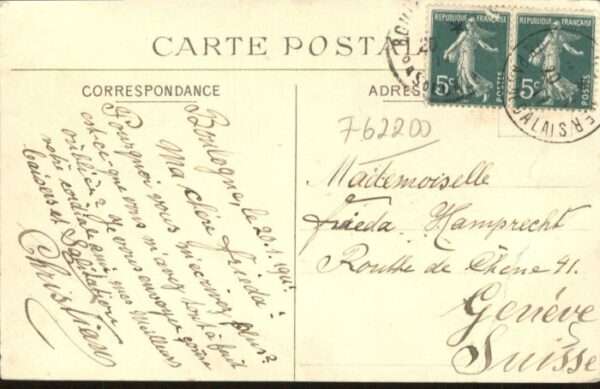 CARTE POSTALE
CORRESPONDANCE
ADRES
RÉPUBLIQUE FRANÇAISE
5c
POSTES
RÉPUBLIQUE FRANÇAISE
5c
POSTES
CALAIS
762200
Boulogne, le 20.1.191
Ma chère Frieda!
Pourquoi vous m'écrivez plus?
est-ce que vous m'avez tout à fait
oublié? Je vous envoye
votre ami mes Meilleurs
baisers et Salutation
Christian
Mademoiselle
Frieda Hamprecht
Routte de Chêne 41.
Genève
Suisse